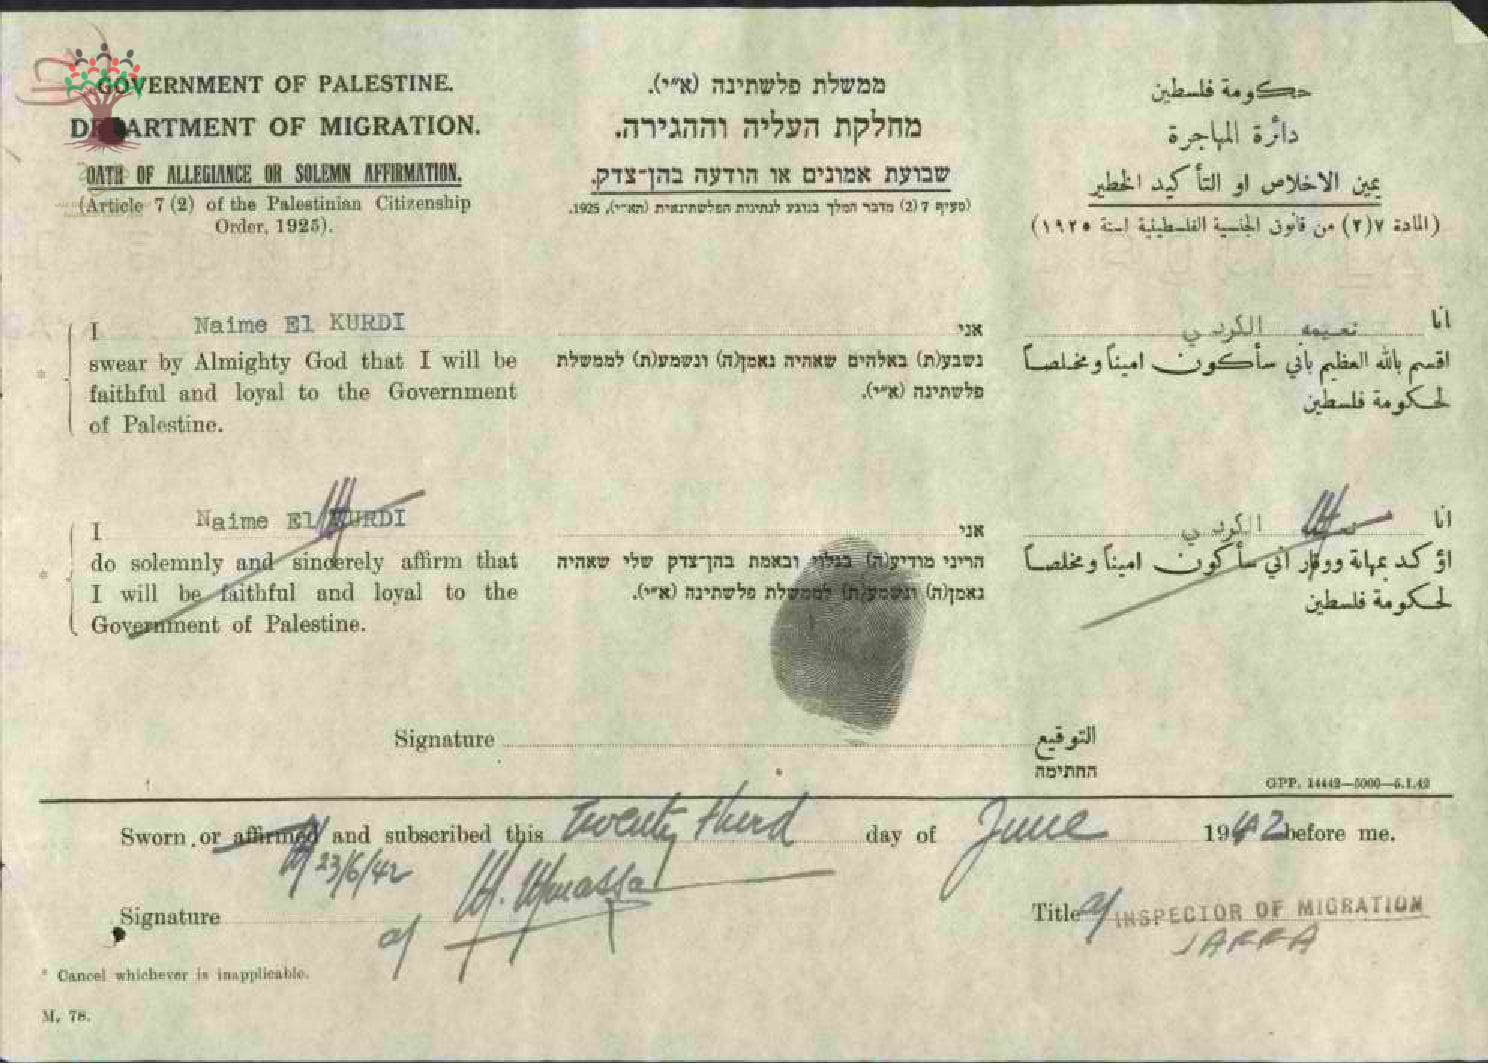 GOVERNMENT OF PALESTINE.
DEPARTMENT OF MIGRATION.
OATH OF ALLEGIANCE OR SOLEMN AFFIRMATION.
(Article 7 (2) of the Palestinian Citizenship
Order, 1925).
ממשלת פלשתינה (א״י).
מחלקת העליה וההגירה.
שבועת אמונים או הודעה בהן־צדק.
(סעיף 7 (2) מדבר המלך בנוגע לנתינות הפלשתינאית (הא״י), 1925.
حكومة فلسطين
دائرة المهاجرة
يمين الاخلاص او التأكيد الخطير
(المادة ٧(٢) من قانون الجنسية الفلسطينية لسنة ١٩٢٥)
I Naime El KURDI
swear by Almighty God that I will be
faithful and loyal to the Government
of Palestine.
אני
נשבע(ת) באלהים שאהיה נאמן(ה) ונשמע(ת) לממשלת
פלשתינה (א״י).
انا نعيمه الكردي
اقسم بالله العظيم باني سأكون اميناً ومخلصاً
لحكومة فلسطين
I Naime El KURDI
do solemnly and sincerely affirm that
I will be faithful and loyal to the
Government of Palestine.
אני
הריני מודיע(ה) בגלוי ובאמת בהן־צדק שלי שאהיה
נאמן(ה) ונשמע(ת) לממשלת פלשתינה (א״י).
انا نعيمه الكردي
اؤكد بمهابة ووقار اني سأكون اميناً ومخلصاً
لحكومة فلسطين
Signature التوقيع
החתימה
GPP. 14442—5000—5.1.42
Sworn or affirmed and subscribed this Twenty third day of June 1942 before me.
23/6/42
Signature
Title INSPECTOR OF MIGRATION
JAFFA
* Cancel whichever is inapplicable.
M. 78.